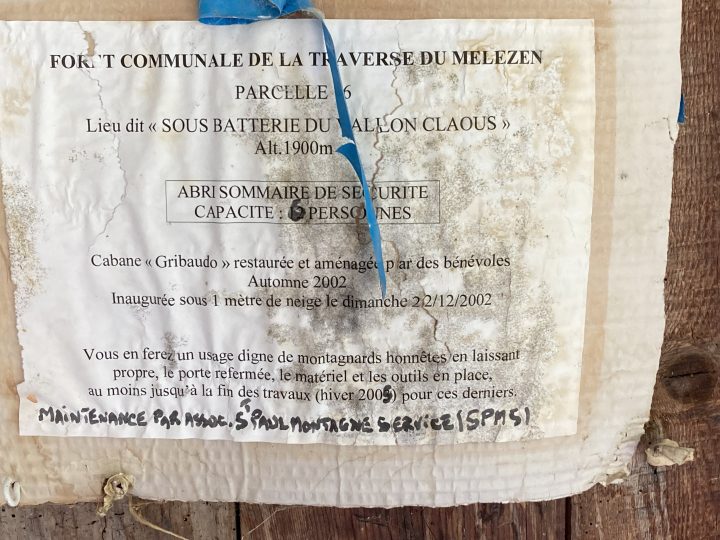 FORET COMMUNALE DE LA TRAVERSE DU MELEZEN
PARCELLE 6
Lieu dit « SOUS BATTERIE DU VALLON CLAOUS »
Alt.1900m
ABRI SOMMAIRE DE SECURITE
CAPACITE : 6 PERSONNES
Cabane « Gribaudo » restaurée et aménagée par des bénévoles
Automne 2002
Inaugurée sous 1 mètre de neige le dimanche 22/12/2002
Vous en ferez un usage digne de montagnards honnêtes en laissant
propre, le porte refermée, le matériel et les outils en place,
au moins jusqu'à la fin des travaux (hiver 2005) pour ces derniers.
MAINTENANCE PAR ASSOC. ST PAUL MONTAGNE SERVICE (SPMS)